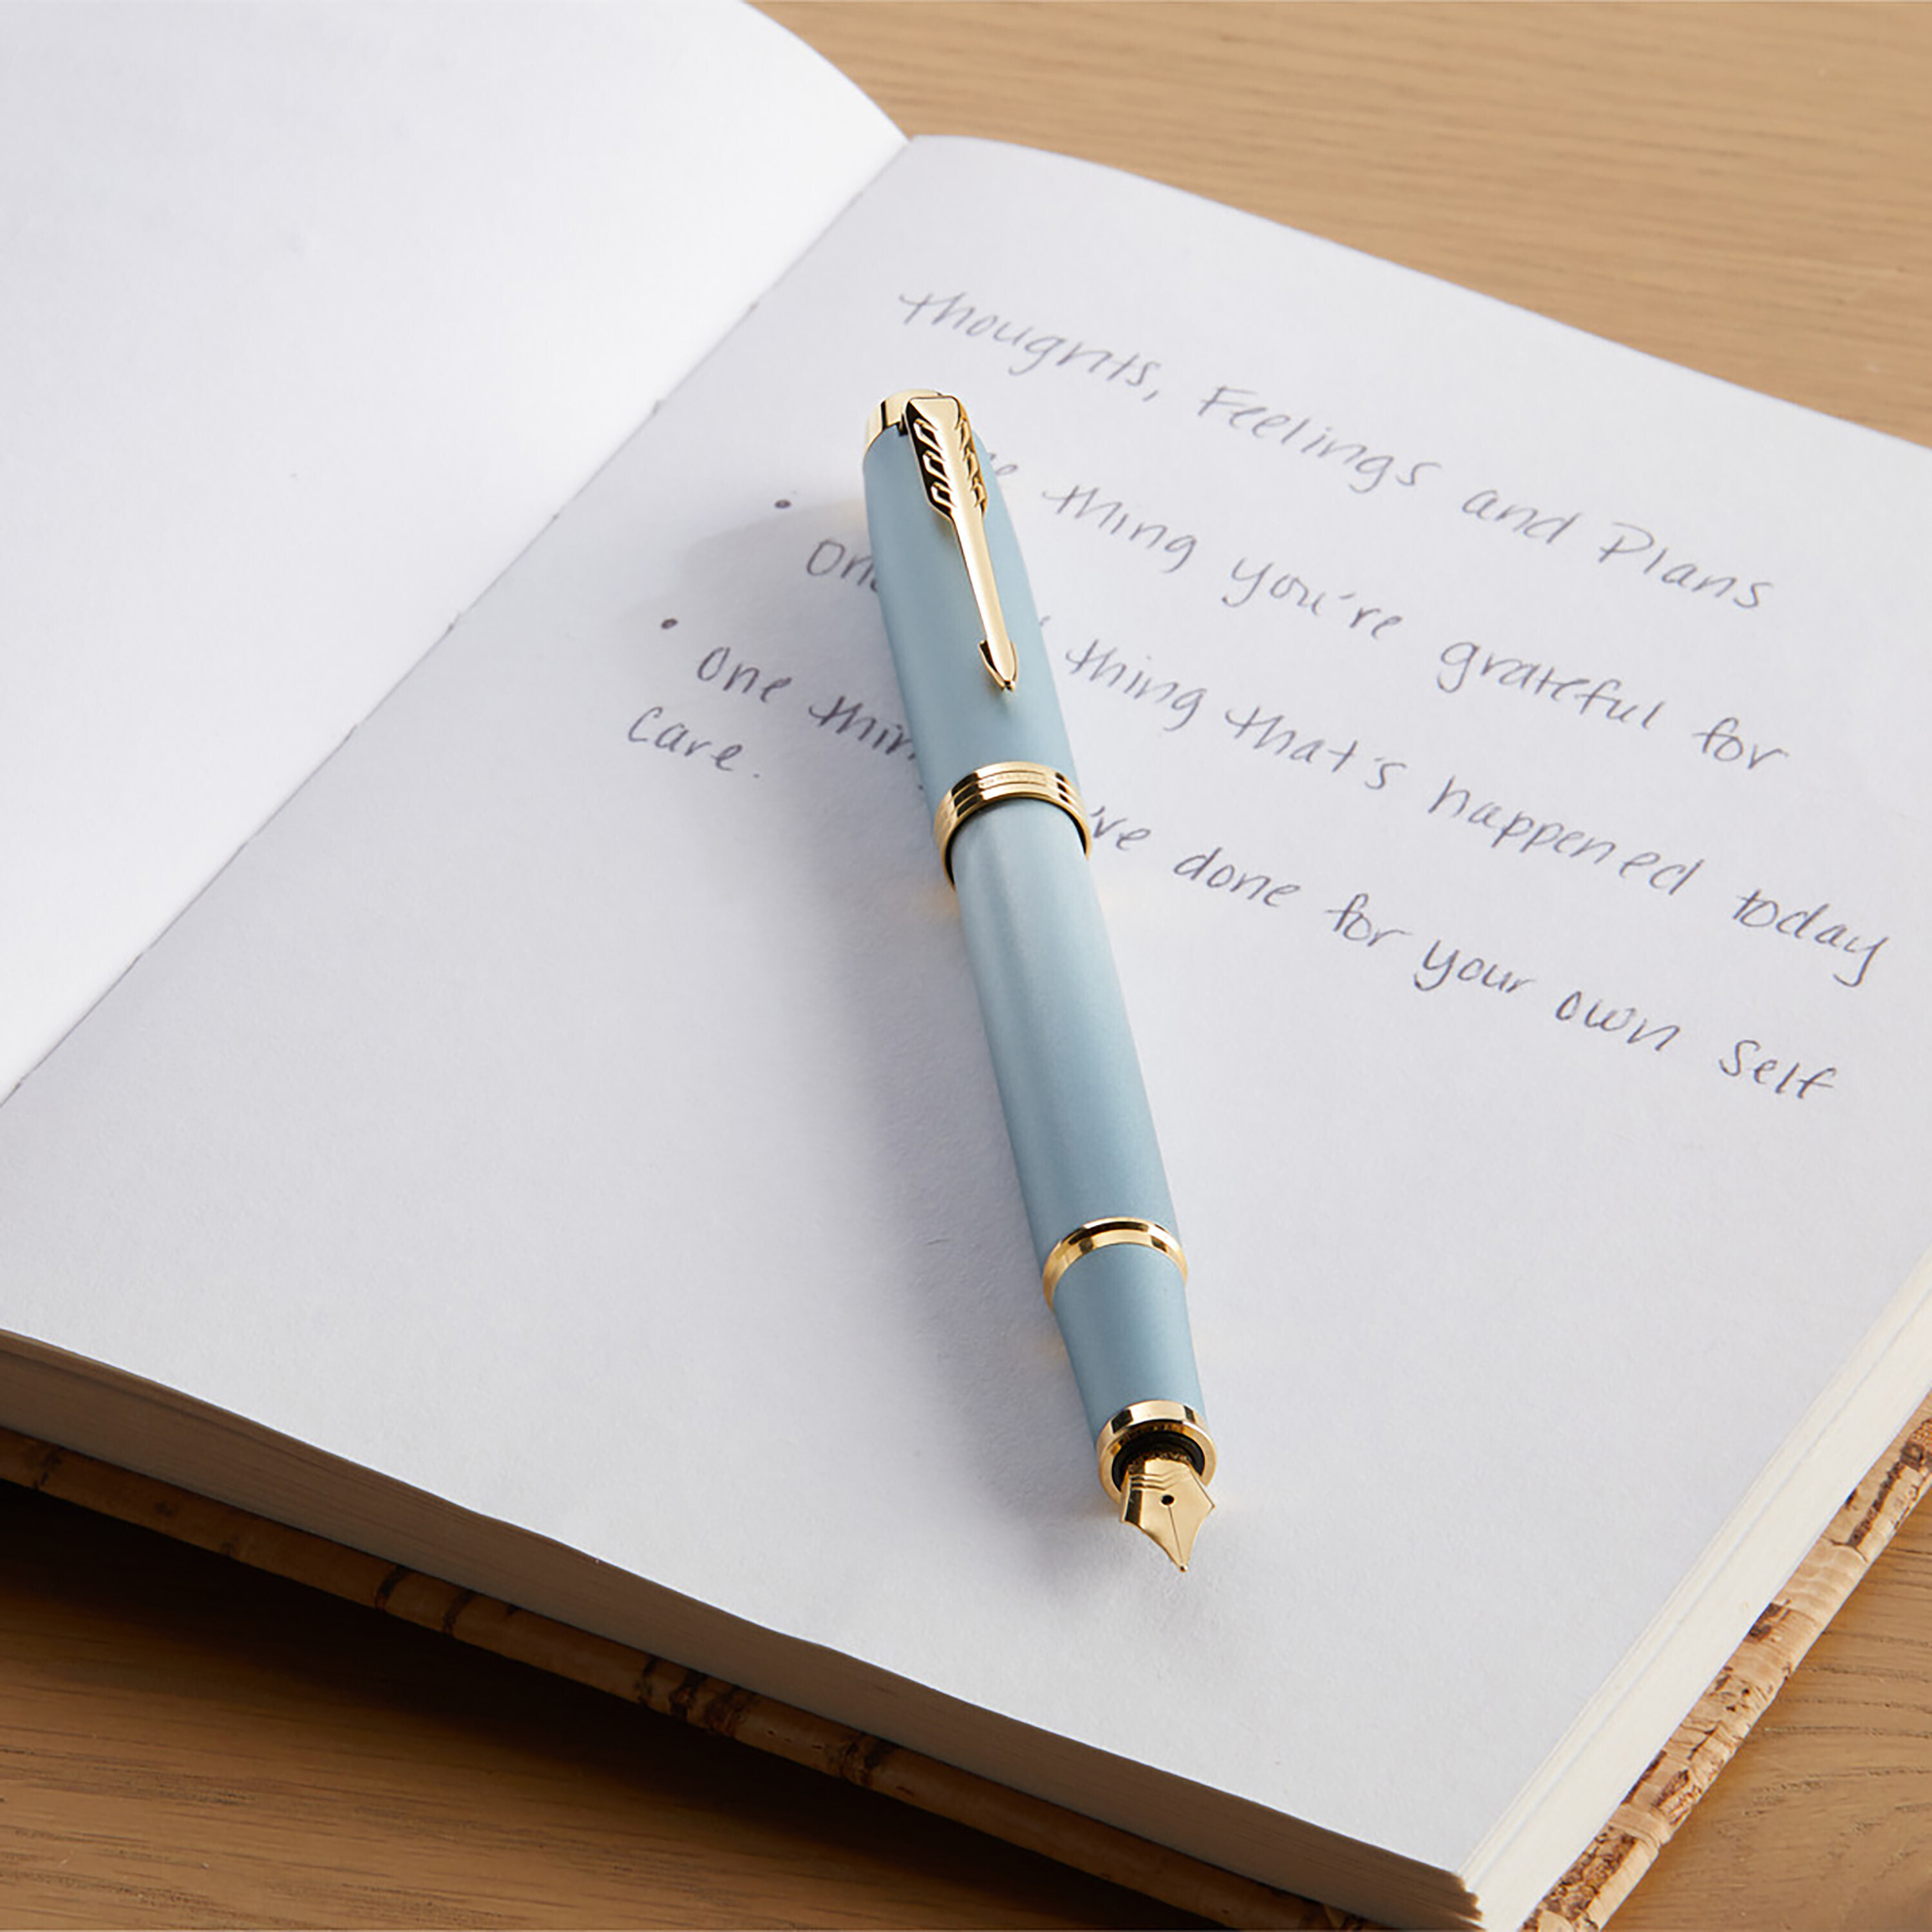 thoughts, Feelings and Plans
• thing you're grateful for
• One thing that's happened today
• one thing 've done for your own self
care.